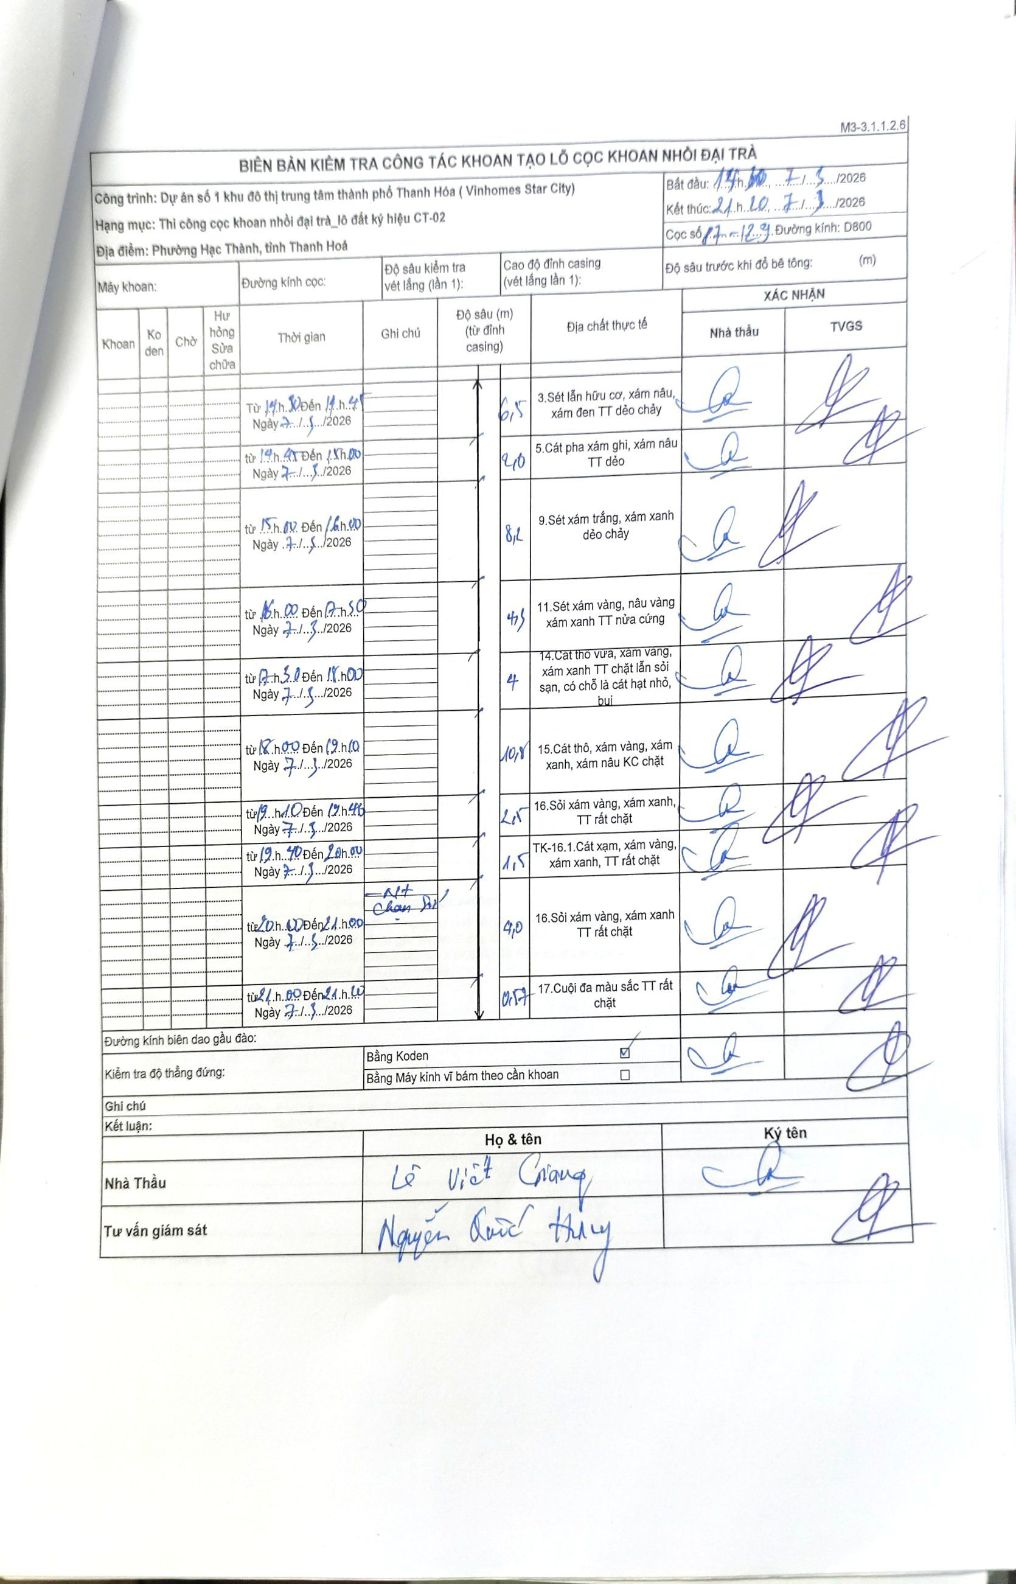 M3-3.1.1.2.6
BIÊN BẢN KIỂM TRA CÔNG TÁC KHOAN TẠO LỖ CỌC KHOAN NHỒI ĐẠI TRÀ
Công trình: Dự án số 1 khu đô thị trung tâm thành phố Thanh Hóa ( Vinhomes Star City)
Hạng mục: Thi công cọc khoan nhồi đại trà_lô đất ký hiệu CT-02
Địa điểm: Phường Hạc Thành, tỉnh Thanh Hoá
Bắt đầu: 14.h.30, ...7./..3.../2026
Kết thúc:21.h.20, ..7../..3.../2026
Cọc số Đường kính: D800
Máy khoan:
Đường kính cọc:
Độ sâu kiểm tra vét lắng (lần 1):
Cao độ đỉnh casing (vét lắng lần 1):
Độ sâu trước khi đổ bê tông: (m)
Khoan
Ko den
Chờ
Hư hỏng Sửa chữa
Thời gian
Ghi chú
Độ sâu (m) (từ đỉnh casing)
Địa chất thực tế
XÁC NHẬN
Nhà thầu
TVGS
Từ 14.h.30 Đến 14.h.45
Ngày 7../..3.../2026
6,5
3.Sét lẫn hữu cơ, xám nâu, xám đen TT dẻo chảy
từ 14.h.45 Đến 15.h.00
Ngày 7../..3.../2026
2,0
5.Cát pha xám ghi, xám nâu TT dẻo
từ 15.h.00 Đến 16.h.00
Ngày .7./...3.../2026
8,2
9.Sét xám trắng, xám xanh dẻo chảy
từ 16.h.00 Đến 17.h.30
Ngày 7../..3.../2026
4,3
11.Sét xám vàng, nâu vàng xám xanh TT nửa cứng
từ 17.h.30 Đến 18.h.00
Ngày 7../..3.../2026
4
14.Cát thô vừa, xám vàng, xám xanh TT chặt lẫn sỏi sạn, có chỗ là cát hạt nhỏ, bụi
từ 18.h.00 Đến 19.h.10
Ngày 7../..3.../2026
10,8
15.Cát thô, xám vàng, xám xanh, xám nâu KC chặt
từ 19.h.10 Đến 19.h.40
Ngày 7../..3.../2026
2,5
16.Sỏi xám vàng, xám xanh, TT rất chặt
từ 19.h.40 Đến 20.h.00
Ngày 7../..3.../2026
1,5
TK-16.1.Cát xạm, xám vàng, xám xanh, TT rất chặt
từ 20.h.00 Đến 21.h.00
Ngày 7../..3.../2026
16.Sỏi xám vàng, xám xanh TT rất chặt
từ 21.h.00 Đến 21.h.20
Ngày 7../..3.../2026
0.57
17.Cuội đa màu sắc TT rất chặt
Đường kính biên dao gầu đào:
Kiểm tra độ thẳng đứng:
Bằng Koden ☑
Bằng Máy kinh vĩ bám theo cần khoan ☐
Ghi chú
Kết luận:
Họ & tên
Ký tên
Nhà Thầu
Lê Viết Giang
Tư vấn giám sát
Nguyễn Quốc Huy